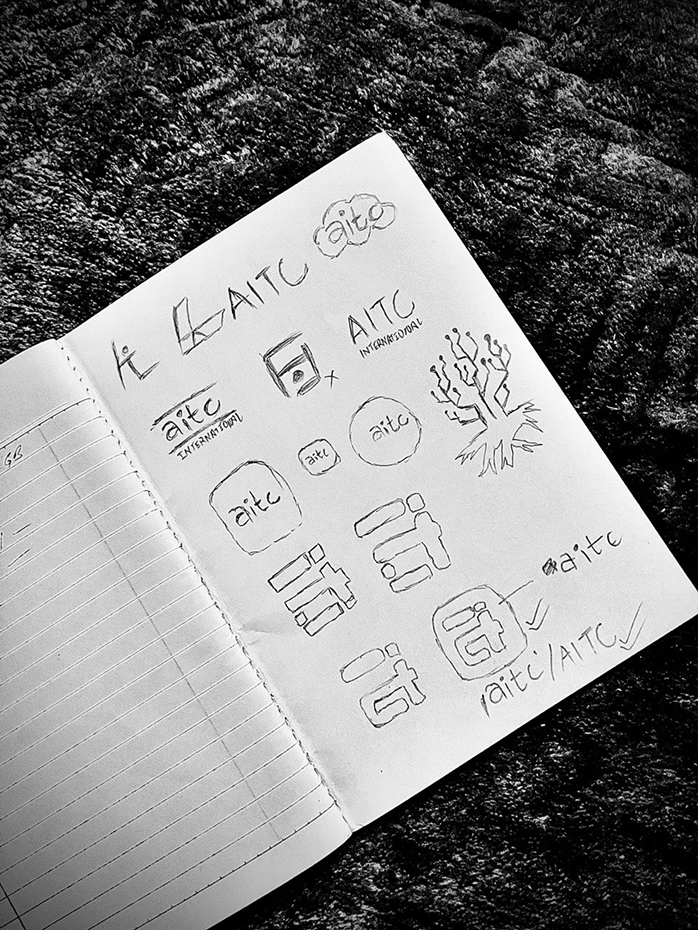 aitc
AITC
AITC
INTERNATIONAL
aitc
INTERNATIONAL
aitc
aitc
aitc
aitc
aitc/AITC
GB